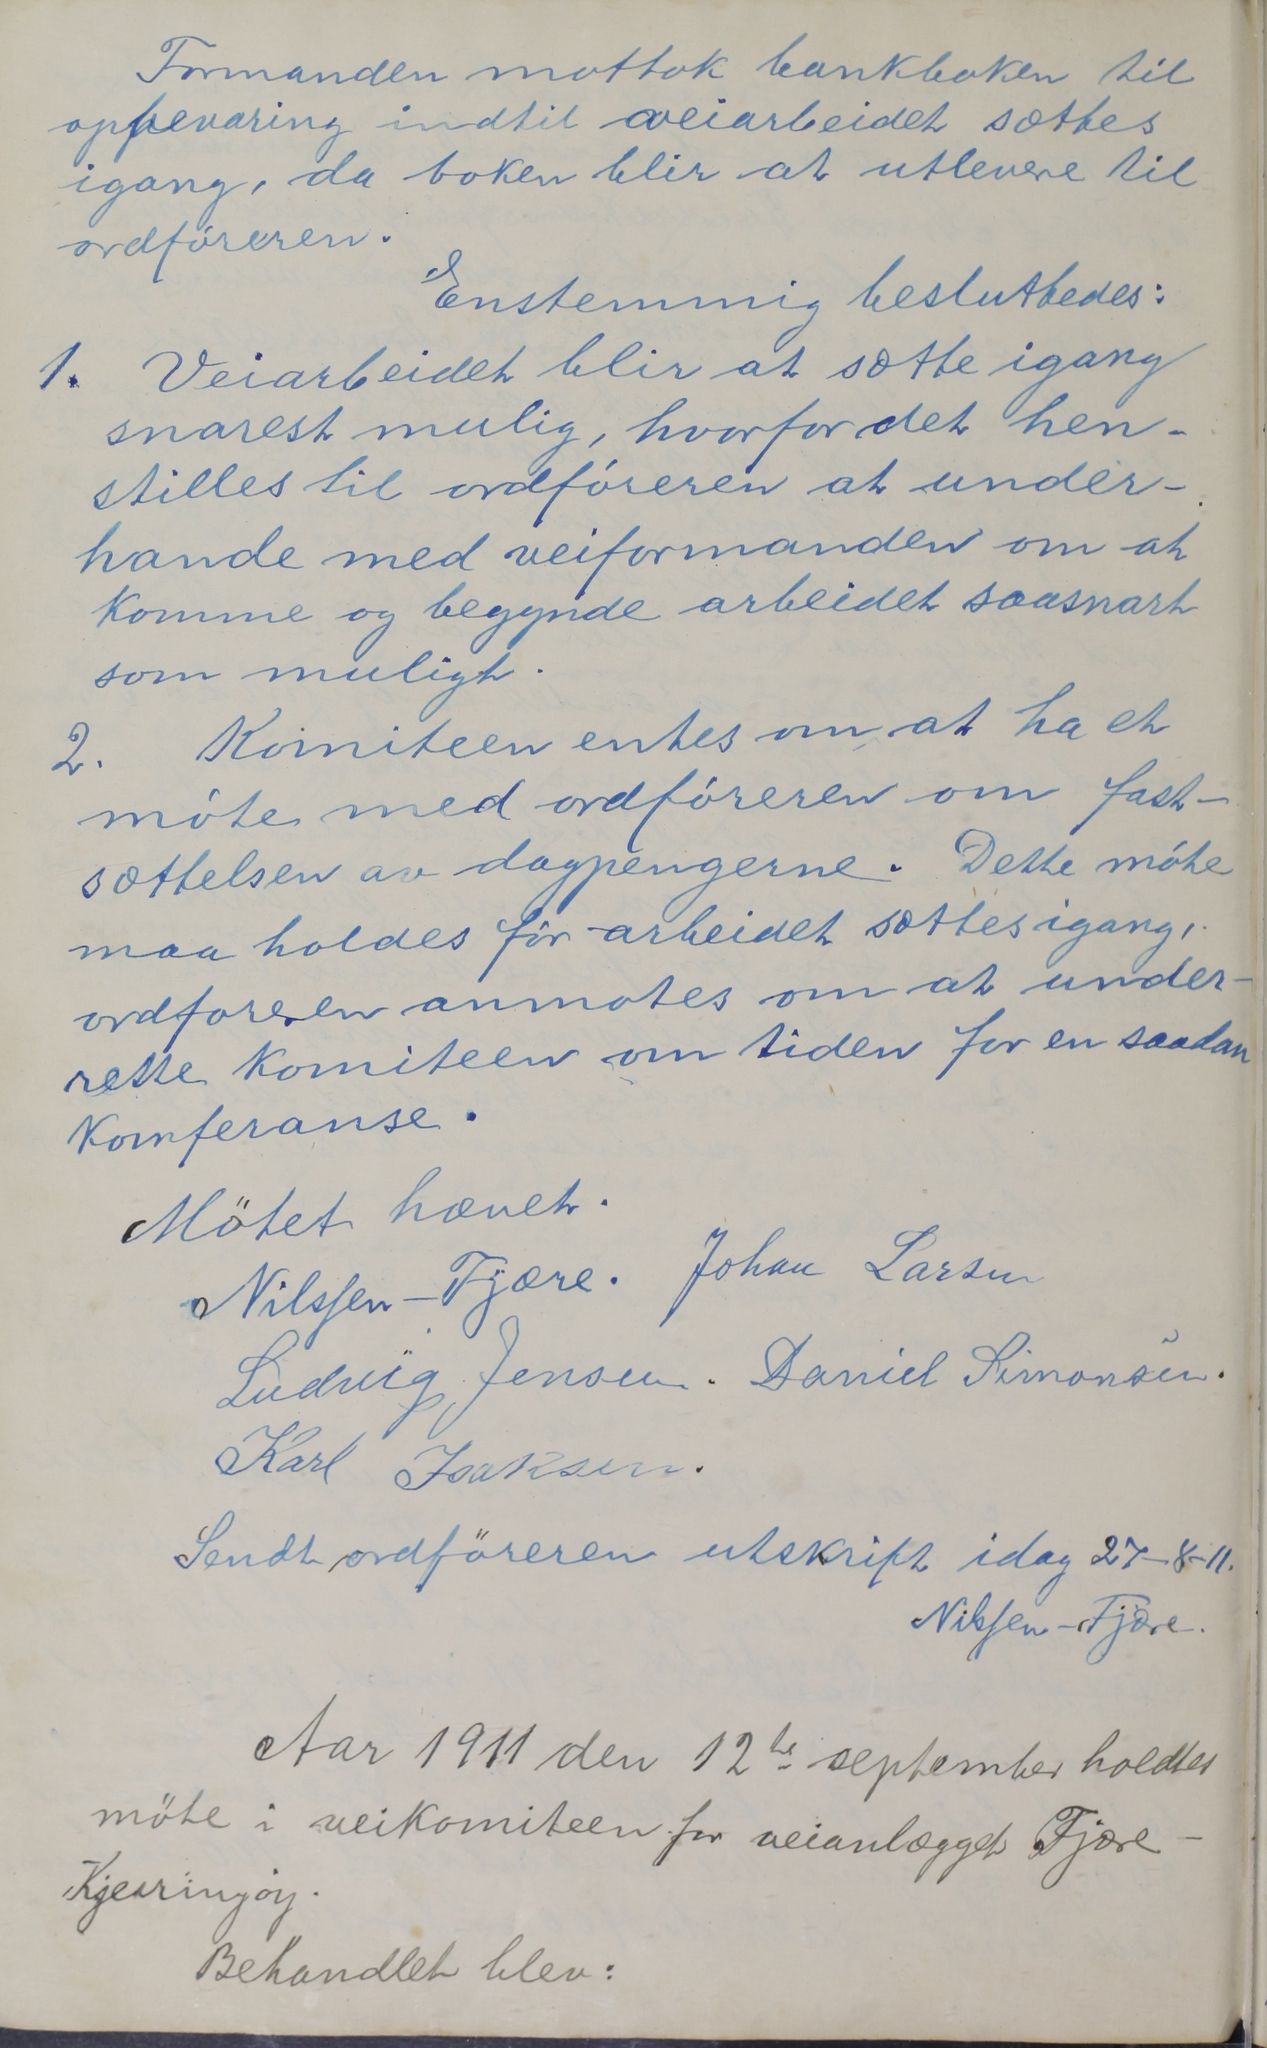 Formanden mottok bankboken til
oppbevaring indtil veiarbeidet sættes
igang, da boken blir at utlevere til
ordføreren.
Enstemmig besluttedes:
1. Veiarbeidet blir at sætte igang
snarest mulig, hvorfor det hen-
stilles til ordføreren at under-
hande med veiformanden om at
komme og begynde arbeidet saasnart
som muligt.
2. Komiteen entes om at ha et
møte med ordføreren om fast-
sættelsen av dagpengerne. Dette møte
maa holdes før arbeidet sættes igang,
ordføreren anmotes om at under-
rette komiteen om tiden for en saadan
Komferanse.
Mötet hævet.
Nilssen-Fjære. Johan Larsen
Ludvig Jensen. Daniel Simonsen.
Karl Isaksen.
Sendt ordföreren utskrift idag 27-8-11.
Nilssen-Fjære.
Aar 1911 den 12te september holdtes
möte i veikomiteen for veianlægget Fjære-
Kjerringøy.
Behandlet blev: